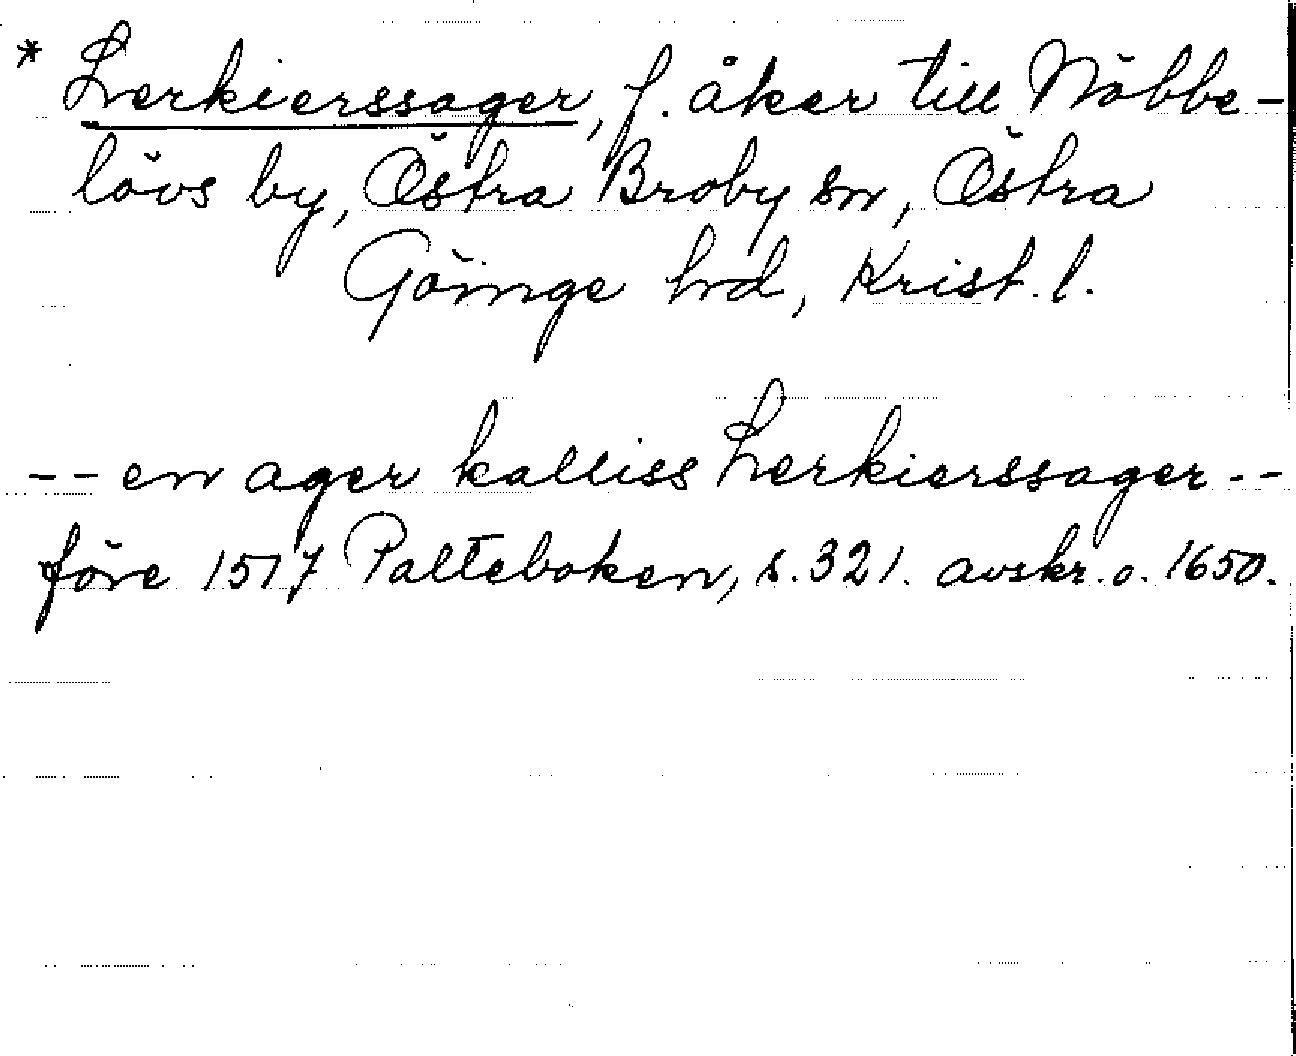 * Lerkierssager, f. åker till Nöbbe-
lövs by, Östra Broby sn, Östra
Göinge hd, Krist. l.
-- en ager kalliss Lerkierssager --
före 1517 Palteboken, s. 321. avskr. o. 1650.